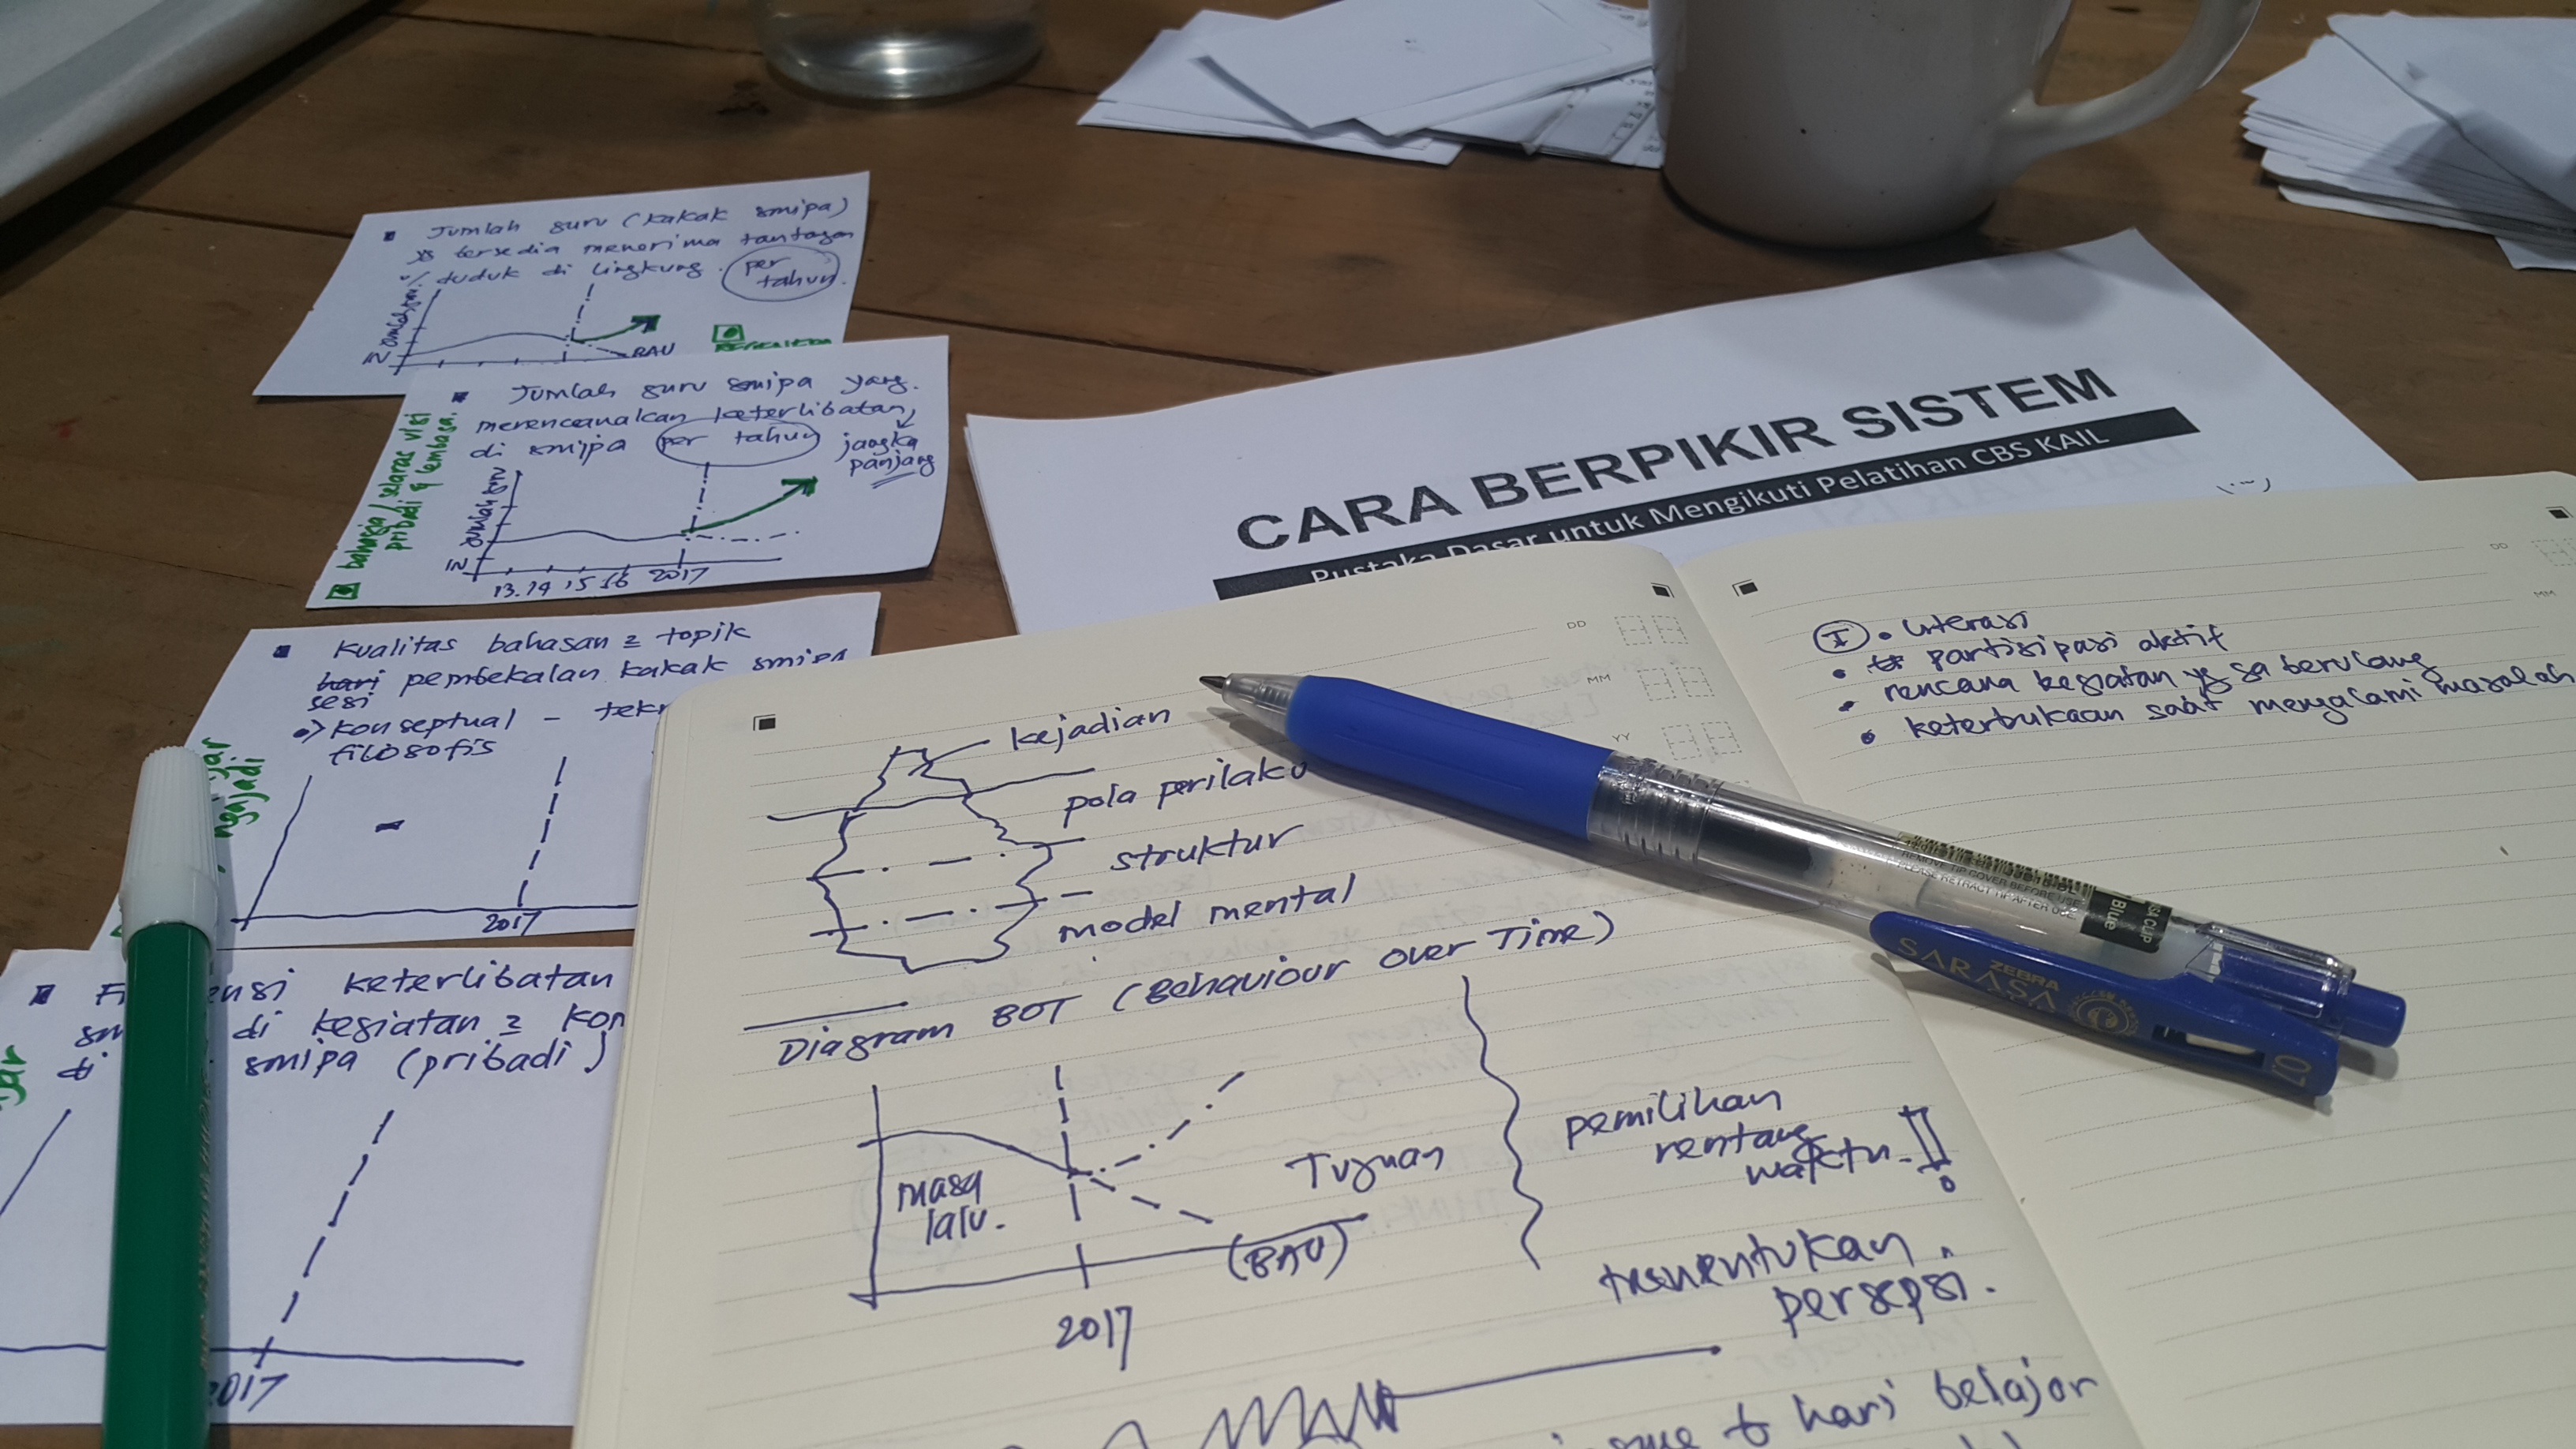 Jumlah guru (kakak smipa)
yg bersedia menerima tantangan
u/ duduk di lingkung.
per
tahun.
Jumlah guru
IN
BAU
Jumlah guru smipa yang
merencanakan keterlibatan
di smipa per tahun
jangka
panjang
bahagia/selaras visi
pribadi & lembaga.
Jumlah guru
IN
13 14 15 16 2017
Kualitas bahasan2 topik
hari pembekalan kakak smipa
sesi
konseptual -
filosofis
2017
keterlibatan
di kegiatan2
di smipa (pribadi)
2017
CARA BERPIKIR SISTEM
Pustaka Dasar untuk Mengikuti Pelatihan CBS KAIL
DD
MM
YY
kejadian
pola perilaku
struktur
model mental
Diagram BOT (Behaviour over Time)
masa
lalu.
Tujuan
(BAU)
2017
pemilihan
rentang
waktu
menentukan
persepsi.
hari belajar
DD
MM
I • Literasi
• partisipasi aktif
• rencana kegiatan yg sa berulang
• keterbukaan saat mengalami masalah
Blue
ZEBRA
SARASA
0.7